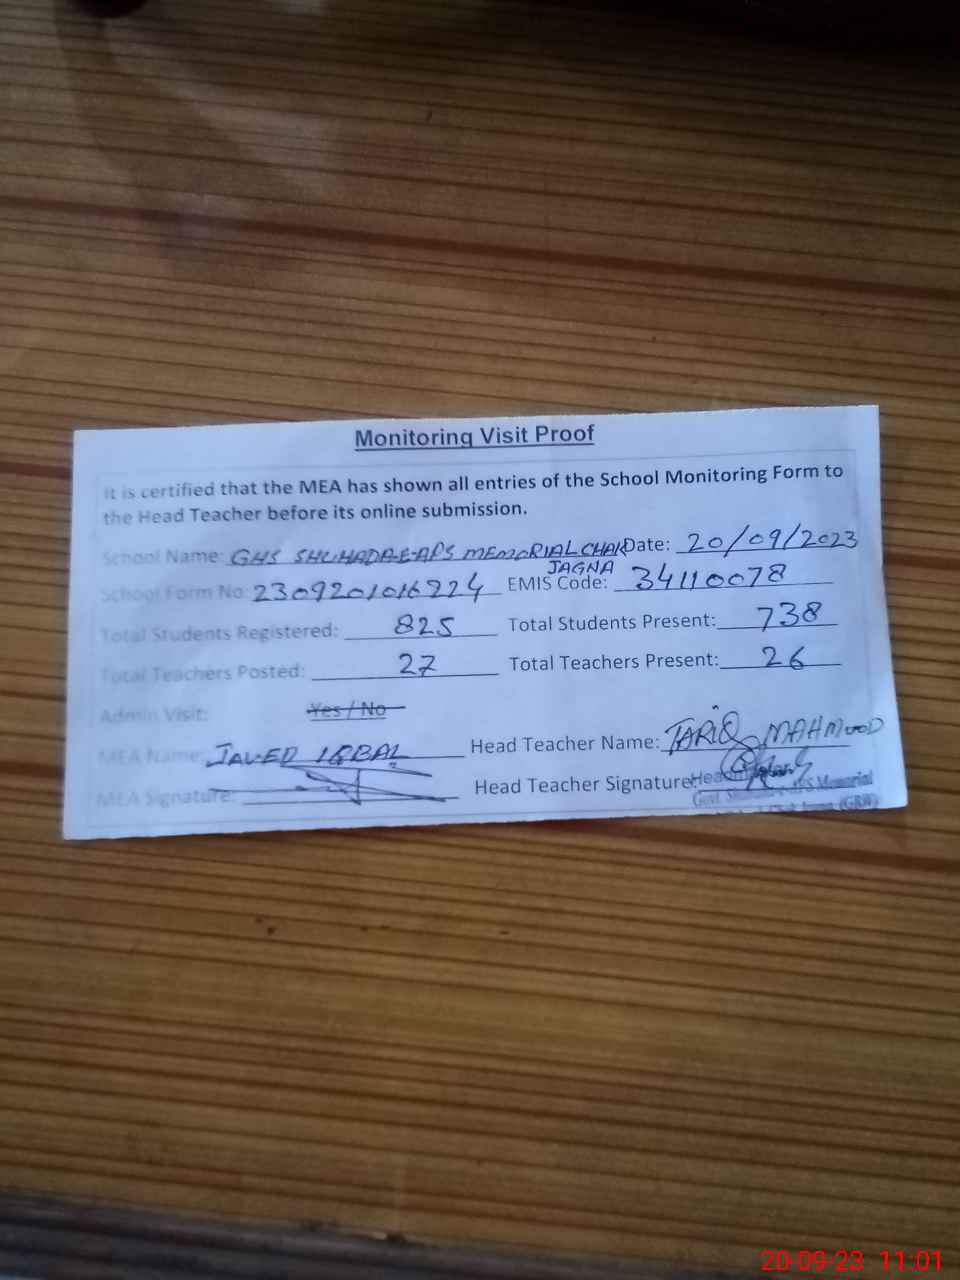 Monitoring Visit Proof
It is certified that the MEA has shown all entries of the School Monitoring Form to
the Head Teacher before its online submission.
School Name: GHS SHUHADA-E-APS MEMORIAL CHAK Date: 20/09/2023
JAGNA
School Form No: 2309201016224 EMIS Code: 34110078
Total Students Registered: 825 Total Students Present: 738
Total Teachers Posted: 27 Total Teachers Present: 26
Admin Visit: Yes / No
MEA Name: JAVED IQBAL Head Teacher Name: TARIQ MAHMOOD
MEA Signature: Head Teacher Signature:
Govt. APS Memorial
(GRW)
20-09-23 11:01